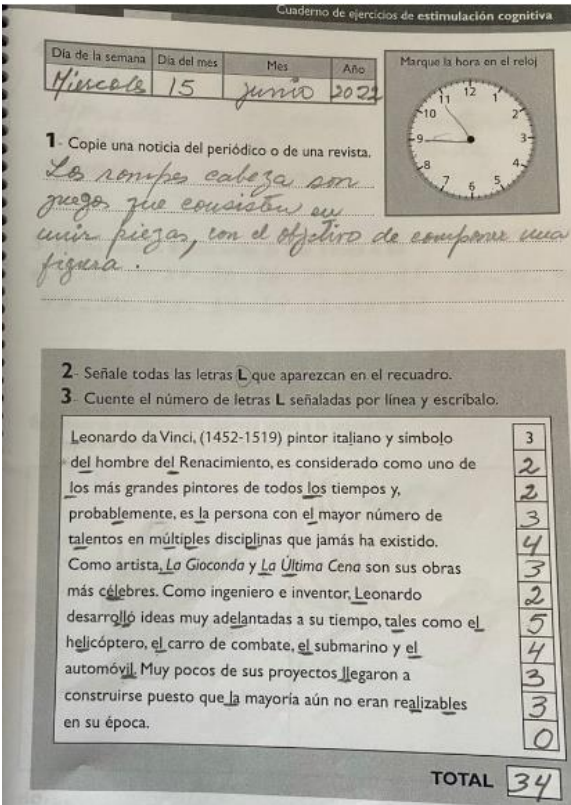 Cuaderno de ejercicios de estimulación cognitiva
Día de la semana Día del mes Mes Año
Miercole 15 junio 2022
Marque la hora en el reloj
12
11 1
10 2
9 3
8 4
7 5
6
1- Copie una noticia del periódico o de una revista.
Los rompes cabeza son
juegos que consisten en
unir piezas, con el objetivo de componer una
figura.
2- Señale todas las letras L que aparezcan en el recuadro.
3- Cuente el número de letras L señaladas por línea y escríbalo.
Leonardo da Vinci, (1452-1519) pintor italiano y símbolo 3
del hombre del Renacimiento, es considerado como uno de 2
los más grandes pintores de todos los tiempos y, 2
probablemente, es la persona con el mayor número de 3
talentos en múltiples disciplinas que jamás ha existido. 4
Como artista, La Gioconda y La Última Cena son sus obras 3
más célebres. Como ingeniero e inventor, Leonardo 2
desarrolló ideas muy adelantadas a su tiempo, tales como el 5
helicóptero, el carro de combate, el submarino y el 4
automóvil. Muy pocos de sus proyectos llegaron a 3
construirse puesto que la mayoría aún no eran realizables 3
en su época. 0
TOTAL 34